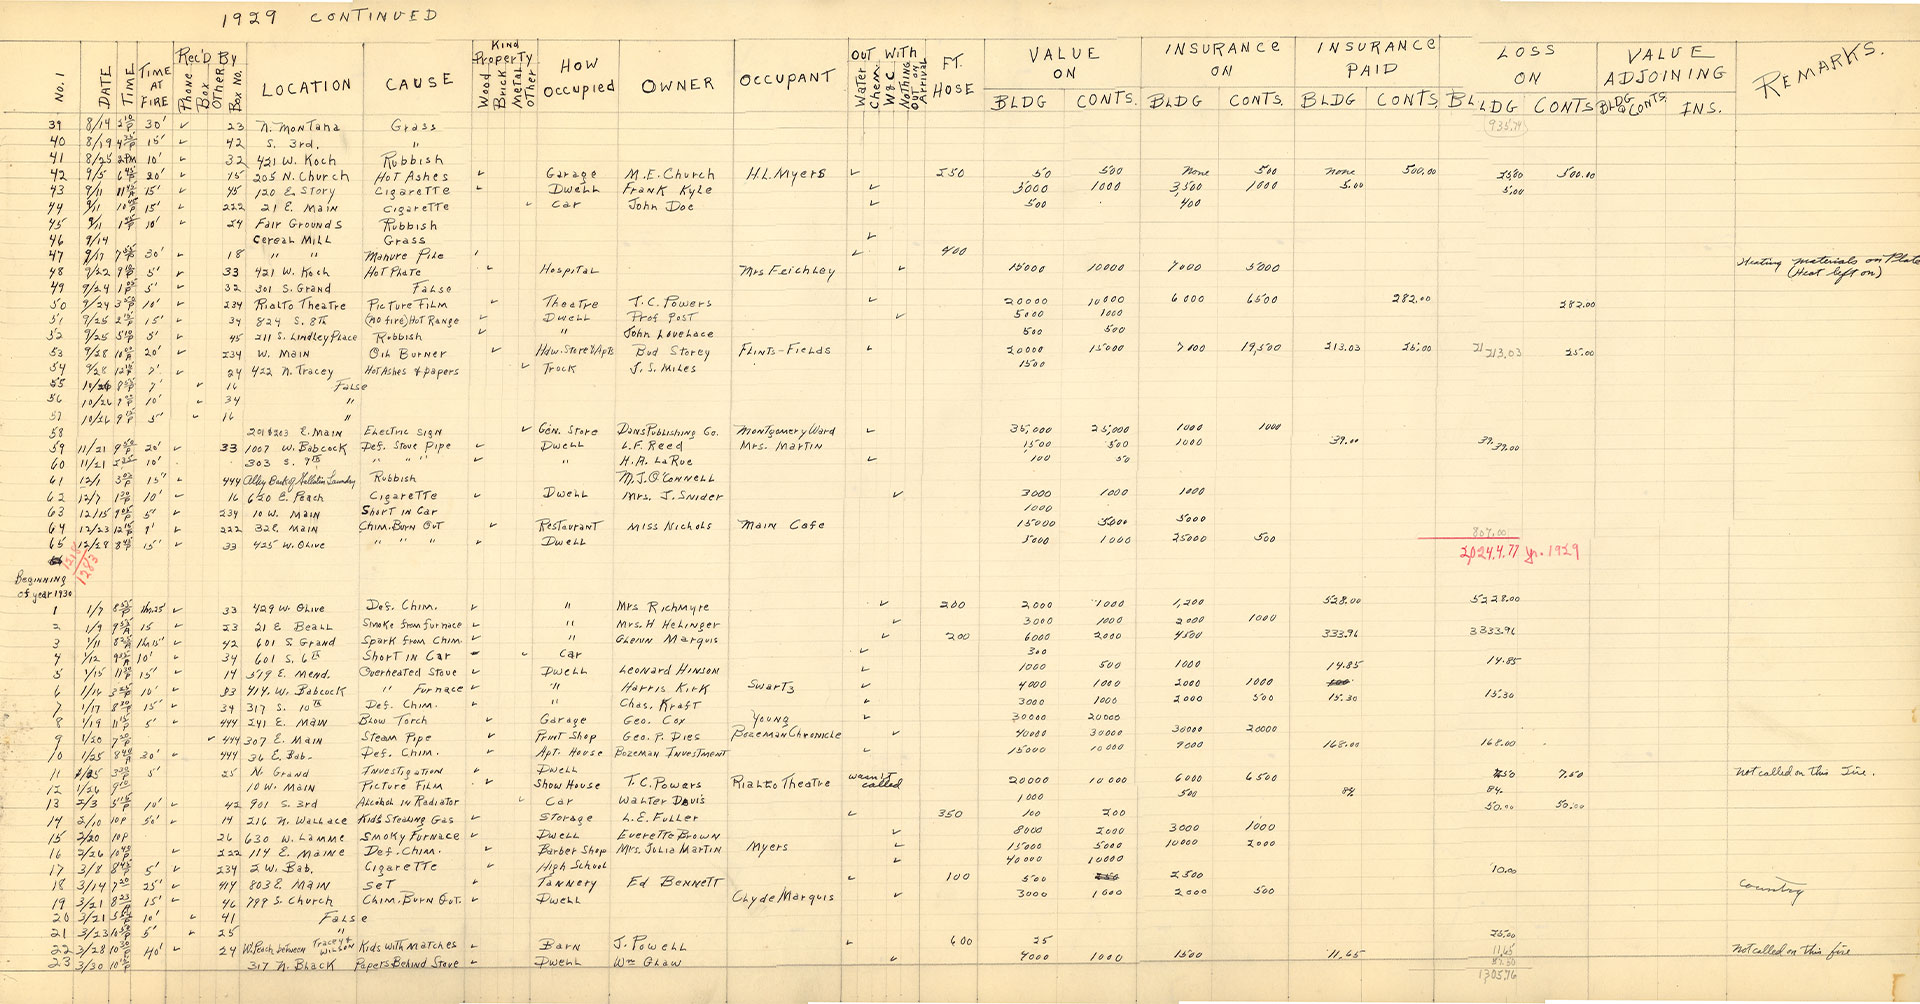 1929 CONTINUED
No. 1 DATE TIME TIME AT FIRE REC'D BY Phone Box Other Box No. LOCATION CAUSE KIND PROPERTY Wood Brick Metal Other HOW OCCUPIED OWNER OCCUPANT OUT WITH Water Chem. W & C NOTHING OUT ON Arrival FT. HOSE VALUE ON BLDG CONTS. INSURANCE ON BLDG CONTS. INSURANCE PAID BLDG CONTS. LOSS ON BLDG CONTS VALUE ADJOINING BLDG & CONTS. INS. REMARKS.
935.79
39 8/14 30' ✓ 23 N. Montana Grass
40 8/19 15' ✓ 42 S. 3rd. "
41 8/25 2PM 10' ✓ 32 421 W. Koch Rubbish
42 9/5 20' ✓ 15 205 N. Church Hot Ashes ✓ Garage M.E. Church H.L. Myers ✓ 250 50 500 none 500 none 500.00 500.00
43 9/11 15' ✓ 45 120 E. Story Cigarette ✓ Dwell Frank Kyle ✓ 5000 1000 3,500 1000 5.00 5.00
44 9/11 15' ✓ 222 21 E. Main Cigarette ✓ Car John Doe ✓ 500 400
45 9/11 10' ✓ 24 Fair Grounds Rubbish
46 9/14 Cereal Mill Grass ✓
47 9/17 30' ✓ 18 " " Manure Pile ✓ 400
48 9/22 5' ✓ 33 421 W. Koch Hot Plate ✓ Hospital Mrs Feichley ✓ 15000 10000 7000 5000 Heating materials on Plate (Heat left on)
49 9/24 5' ✓ 32 301 S. Grand False
50 9/24 10' ✓ 234 Rialto Theatre Picture Film ✓ Theatre T.C. Powers ✓ 20000 10000 6000 6500 282.00 282.00
51 9/25 15' ✓ 34 824 S. 8th (no fire) Hot Range ✓ Dwell Prof Post ✓ 5000 1000
52 9/25 5' ✓ 45 211 S. Lindley Place Rubbish ✓ " John Lovelace 500 500
53 9/28 20' ✓ 234 W. Main Oil Burner ✓ Hdw. Store & Apts Bud Storey Flints-Fields ✓ 20000 15000 7000 19,500 213.03 25.00 213.03 25.00
54 9/28 7' ✓ 24 422 N. Tracey Hot Ashes & papers ✓ Truck J.S. Miles 1500
55 10/26 7' ✓ 16 False
56 10/26 10' ✓ 34 "
57 10/26 5' ✓ 16 "
58 201 & 203 E. Main Electric Sign ✓ Gen. Store Dans Publishing Co. Montgomery Ward ✓ 35,000 25,000 1000 1000
59 11/21 20' ✓ 33 1007 W. Babcock Def. Stove Pipe ✓ Dwell L.F. Reed Mrs. Martin ✓ 1500 500 1000 39.00 39.00
60 11/21 10' 303 S. 9th " " " ✓ " H.A. LaRue ✓ 100 50
61 12/1 15" ✓ 444 Alley Back of Gallatin Laundry Rubbish M.J. O'Connell
62 12/7 10' ✓ 16 620 E. Peach Cigarette ✓ Dwell Mrs. J. Snider ✓ 3000 1000 1000
63 12/15 5' ✓ 234 10 W. Main Short in Car 1000
64 12/23 9' ✓ 222 32 E. Main Chim. Burn Out ✓ Restaurant Miss Nichols Main Cafe 15000 5000 5000
65 12/28 15" ✓ 33 425 W. Olive " " " ✓ Dwell 5000 1000 25000 500
807.00
yr. 1929
1283
Beginning
of year 1930
1 1/7 1hr.25' ✓ 33 429 W. Olive Def. Chim. ✓ " Mrs Richmyre ✓ 200 2,000 1000 1,200 528.00 5228.00
2 1/9 15 ✓ 23 21 E Beall Smoke from furnace ✓ " Mrs. H Helinger ✓ 3000 1000 2000 1000
3 1/11 1h15' ✓ 42 601 S. Grand Spark from Chim. ✓ " Glenn Marquis ✓ 200 6000 2000 4500 333.96 3333.96
4 1/12 10' ✓ 34 601 S. 6th Short in Car ✓ Car ✓ 300
5 1/15 15" ✓ 14 519 E. Mend. Overheated Stove ✓ Dwell Leonard Hinson ✓ 1000 500 1000 14.85 14.85
6 1/16 10' ✓ 33 414. W. Babcock " Furnace ✓ " Harris Kirk Swartz ✓ 4000 1000 2000 1000
7 1/17 15' ✓ 34 317 S. 10th Def. Chim. ✓ " Chas. Kraft ✓ 3000 1000 2000 500 15.30 15.30
8 1/19 5' ✓ 444 241 E. Main Blow Torch ✓ Garage Geo. Cox Young ✓ 30000 20000
9 1/20 ✓ 444 307 E. Main Steam Pipe ✓ Print Shop Geo. P. Dies Bozeman Chronicle ✓ 40000 30000 30000 20000
10 1/25 30' ✓ 444 36 E. Bab. Def. Chim. ✓ Apt. House Bozeman Investment 15000 10000 9000 168.00 168.00
11 1/25 5' 25 N. Grand Investigation Dwell
12 1/26 10 W. Main Picture Film ✓ Show House T.C. Powers Rialto Theatre wasn't called 20000 10000 6000 6500 7.50 Not called on this Fire.
13 2/3 10' ✓ 42 901 S. 3rd Alcohol in Radiator ✓ Car Walter Davis 1000 500 84 84.
14 2/10 10P 50' ✓ 14 216 N. Wallace Kids Stealing Gas ✓ Storage L.E. Fuller ✓ 350 100 200 50.00 50.00
15 2/20 10P 26 630 W. Lamme Smoky Furnace ✓ Dwell Everette Brown ✓ 8000 2000 3000 1000
16 2/26 ✓ 222 114 E. Maine Def. Chim. ✓ Barber Shop Mrs. Julia Martin Myers ✓ 15000 5000 10000 2000
17 3/8 5' ✓ 234 2 W. Bab. Cigarette ✓ High School ✓ 40000 10000
18 3/14 25' ✓ 414 803 E. Main Set ✓ Tannery Ed Bennett ✓ 100 500 2500 10.00 Country
19 3/21 15' ✓ 46 799 S. Church Chim. Burn Out. ✓ Dwell Clyde Marquis ✓ 3000 1000 2000 500
20 3/21 10' ✓ 41 False
21 3/23 5' ✓ 25 "
22 3/28 40' ✓ 24 W. Peach between Tracey & Willson Kids with Matches ✓ Barn J. Powell ✓ 600 25 25.00 Not called on this fire
23 3/30 317 N. Black Papers Behind Stove ✓ Dwell Wm Glaw ✓ 4000 1000 1500 11.65 11.65
1305.76